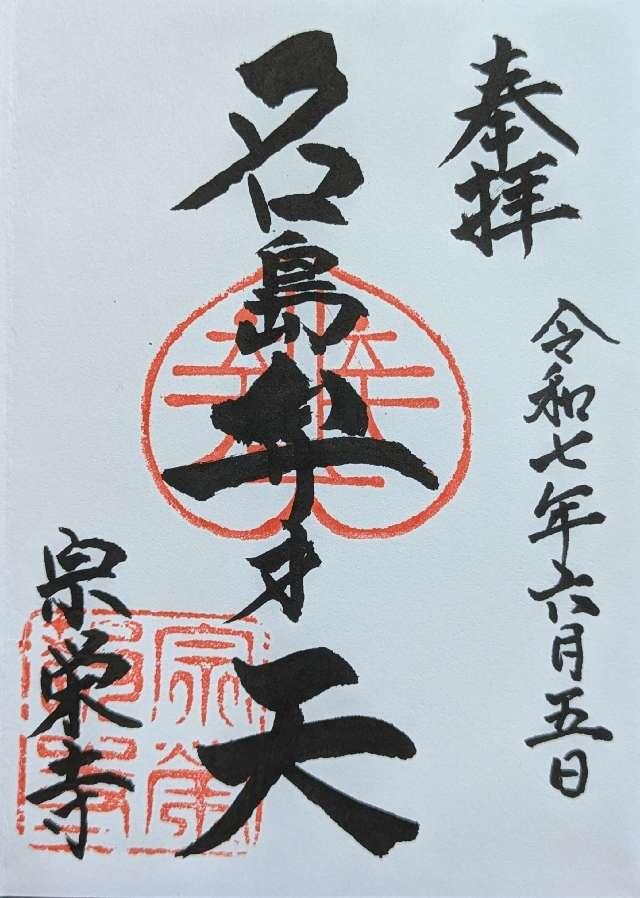 奉拝
令和七年六月五日
名島弁才天
宗栄寺